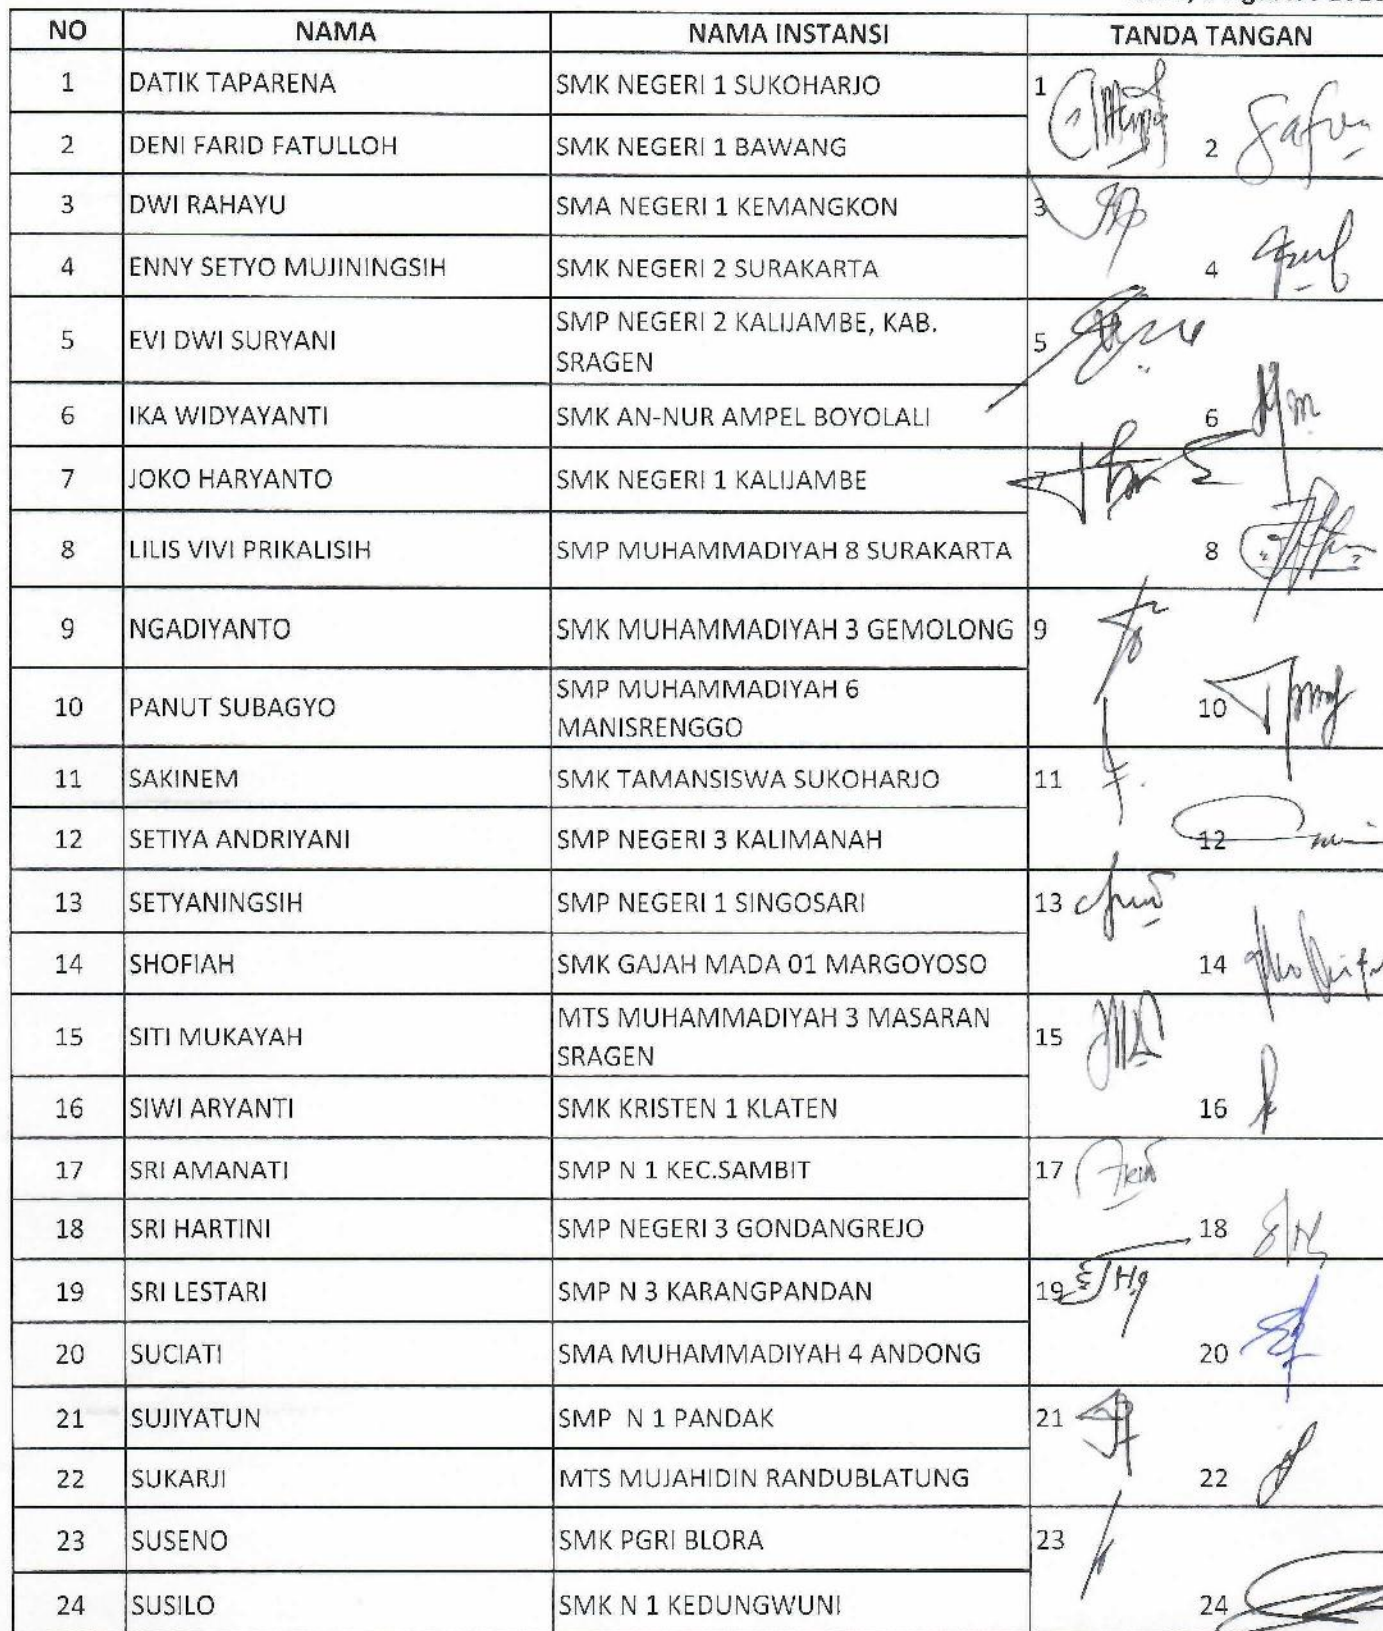 NO NAMA NAMA INSTANSI TANDA TANGAN
1 DATIK TAPARENA SMK NEGERI 1 SUKOHARJO 1
2 DENI FARID FATULLOH SMK NEGERI 1 BAWANG 2
3 DWI RAHAYU SMA NEGERI 1 KEMANGKON 3
4 ENNY SETYO MUJININGSIH SMK NEGERI 2 SURAKARTA 4
5 EVI DWI SURYANI SMP NEGERI 2 KALIJAMBE, KAB.
SRAGEN 5
6 IKA WIDYAYANTI SMK AN-NUR AMPEL BOYOLALI 6
7 JOKO HARYANTO SMK NEGERI 1 KALIJAMBE 7
8 LILIS VIVI PRIKALISIH SMP MUHAMMADIYAH 8 SURAKARTA 8
9 NGADIYANTO SMK MUHAMMADIYAH 3 GEMOLONG 9
10 PANUT SUBAGYO SMP MUHAMMADIYAH 6
MANISRENGGO 10
11 SAKINEM SMK TAMANSISWA SUKOHARJO 11
12 SETIYA ANDRIYANI SMP NEGERI 3 KALIMANAH 12
13 SETYANINGSIH SMP NEGERI 1 SINGOSARI 13
14 SHOFIAH SMK GAJAH MADA 01 MARGOYOSO 14
15 SITI MUKAYAH MTS MUHAMMADIYAH 3 MASARAN
SRAGEN 15
16 SIWI ARYANTI SMK KRISTEN 1 KLATEN 16
17 SRI AMANATI SMP N 1 KEC.SAMBIT 17
18 SRI HARTINI SMP NEGERI 3 GONDANGREJO 18
19 SRI LESTARI SMP N 3 KARANGPANDAN 19
20 SUCIATI SMA MUHAMMADIYAH 4 ANDONG 20
21 SUJIYATUN SMP N 1 PANDAK 21
22 SUKARJI MTS MUJAHIDIN RANDUBLATUNG 22
23 SUSENO SMK PGRI BLORA 23
24 SUSILO SMK N 1 KEDUNGWUNI 24